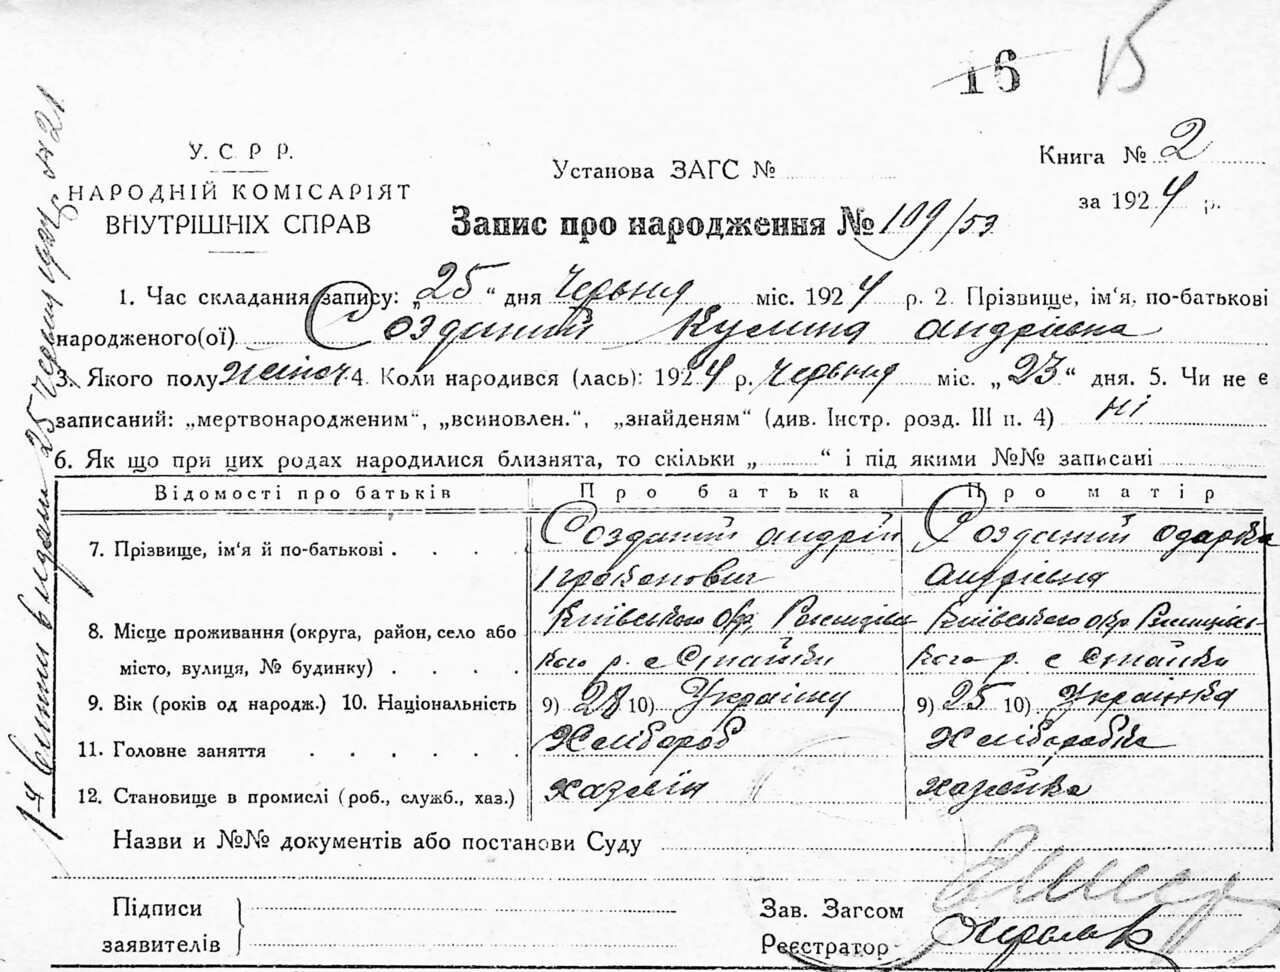 16 15
У. С Р Р.
НАРОДНІЙ КОМІСАРІЯТ
ВНУТРІШНІХ СПРАВ
Установа ЗАГС №
Книга № 2
за 1924 р.
Запис про народження № 109/53
1. Час складання запису: „25“ дня червня міс. 1924 р. 2. Прізвище, ім'я, по-батькові
народженого(ої) Созданий Кулина Андріівна
3. Якого полу жіноч. 4. Коли народився (лась): 1924 р. червня міс. „23“ дня. 5. Чи не є
записаний: „мертвонародженим“, „всиновлен.“, „знайденям“ (див. Інстр. розд. III п. 4) ні
6. Як що при цих родах народилися близнята, то скільки „ “ і під якими №№ записані
Відомості про батьків Про батька Про матір
7. Прізвище, ім'я й по-батькові Созданий Андрій Созданий Одарка
Андріівна
8. Місце проживання (округа, район, село або Київського окр. Київського окр.
місто, вулиця, № будинку) кого р. с Стайки кого р. с Стайки
9. Вік (років од народж.) 10. Національність 9) 28 10) Українец 9) 25 10) Українка
11. Головне заняття Хлібороб Хліборобка
12. Становище в промислі (роб., служб., хаз.) хазяїн хазяйка
Назви и №№ документів або постанови Суду
Підписи
заявителів
Зав. Загсом
Реєстратор
25 червня 1924 р. № 21